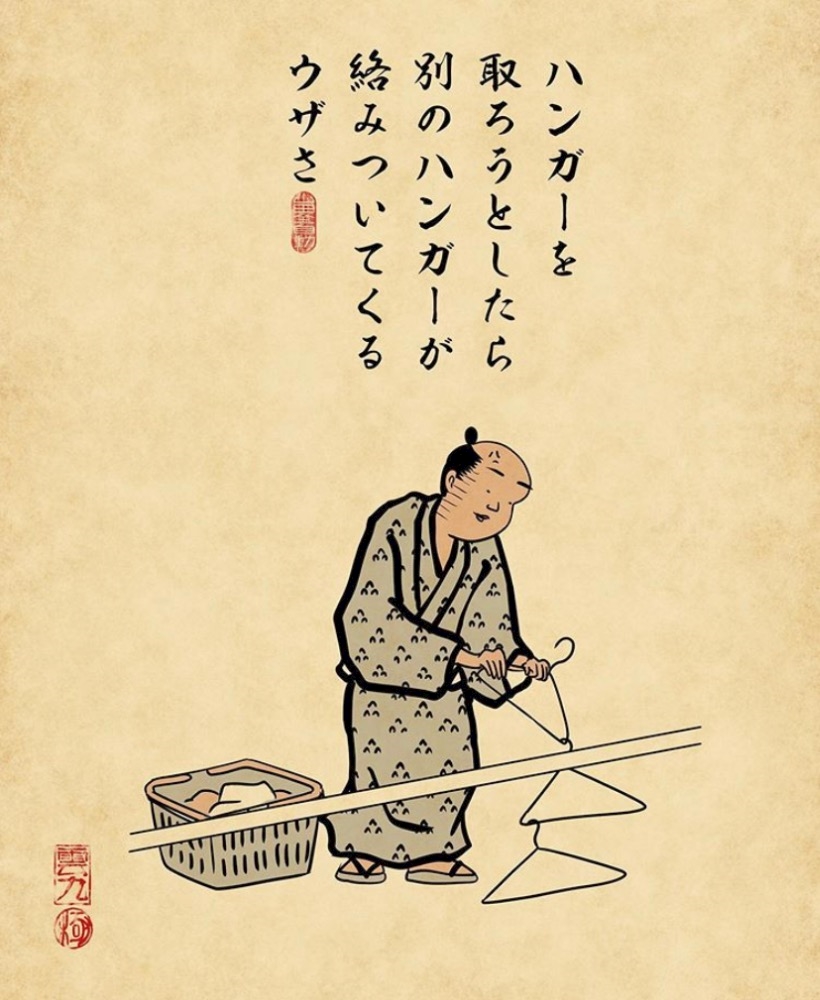 ハンガーを
取ろうとしたら
別のハンガーが
絡みついてくる
ウザさ